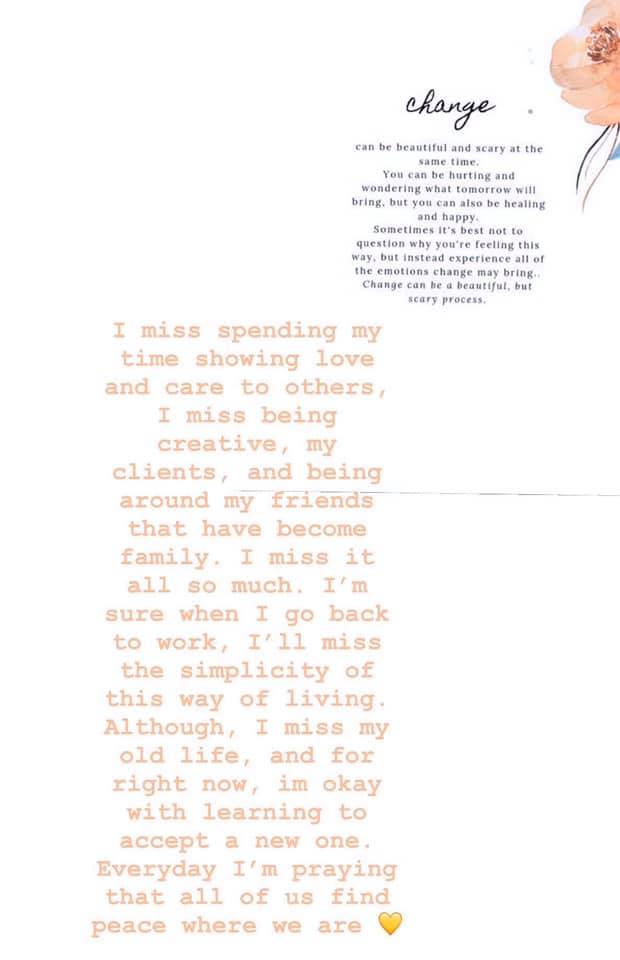 change
can be beautiful and scary at the
same time.
You can be hurting and
wondering what tomorrow will
bring, but you can also be healing
and happy.
Sometimes it's best not to
question why you're feeling this
way, but instead experience all of
the emotions change may bring..
Change can be a beautiful, but
scary process.
I miss spending my
time showing love
and care to others,
I miss being
creative, my
clients, and being
around my friends
that have become
family. I miss it
all so much. I’m
sure when I go back
to work, I’ll miss
the simplicity of
this way of living.
Although, I miss my
old life, and for
right now, im okay
with learning to
accept a new one.
Everyday I’m praying
that all of us find
peace where we are 💛